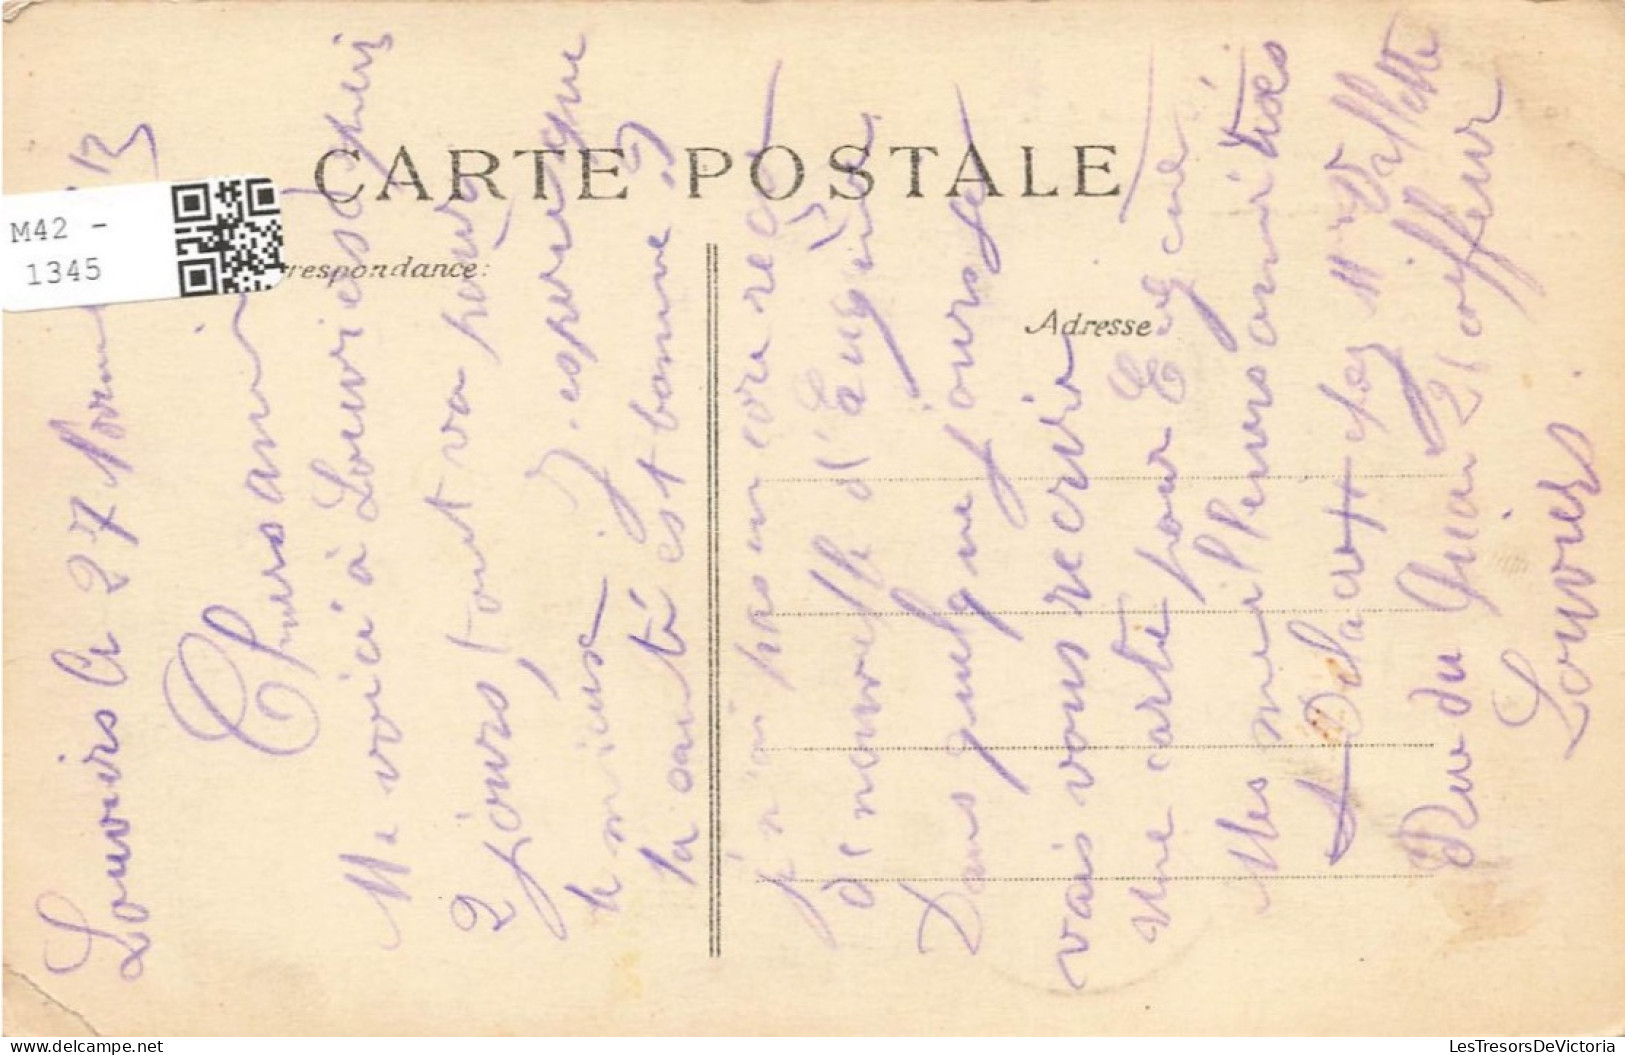 CARTE POSTALE
respondance:
Adresse
M42 -
1345
Louviers Ce 27
Chers ami
Me voici à Louviers depuis
2 jours, tout va pour
le mieux. J'espère que
la santé est bonne,
je n'ai pas encore reçu
de nouvelle d'Eugène
Dans quelque jours je
vais vous recrire
une carte pour Eugène
Mes meilleurs amitiés
Delacroix chez Mr Vallette
Rue du Quai 21 coiffeur
Louviers
delcampe.net
LesTresorsDeVictoria